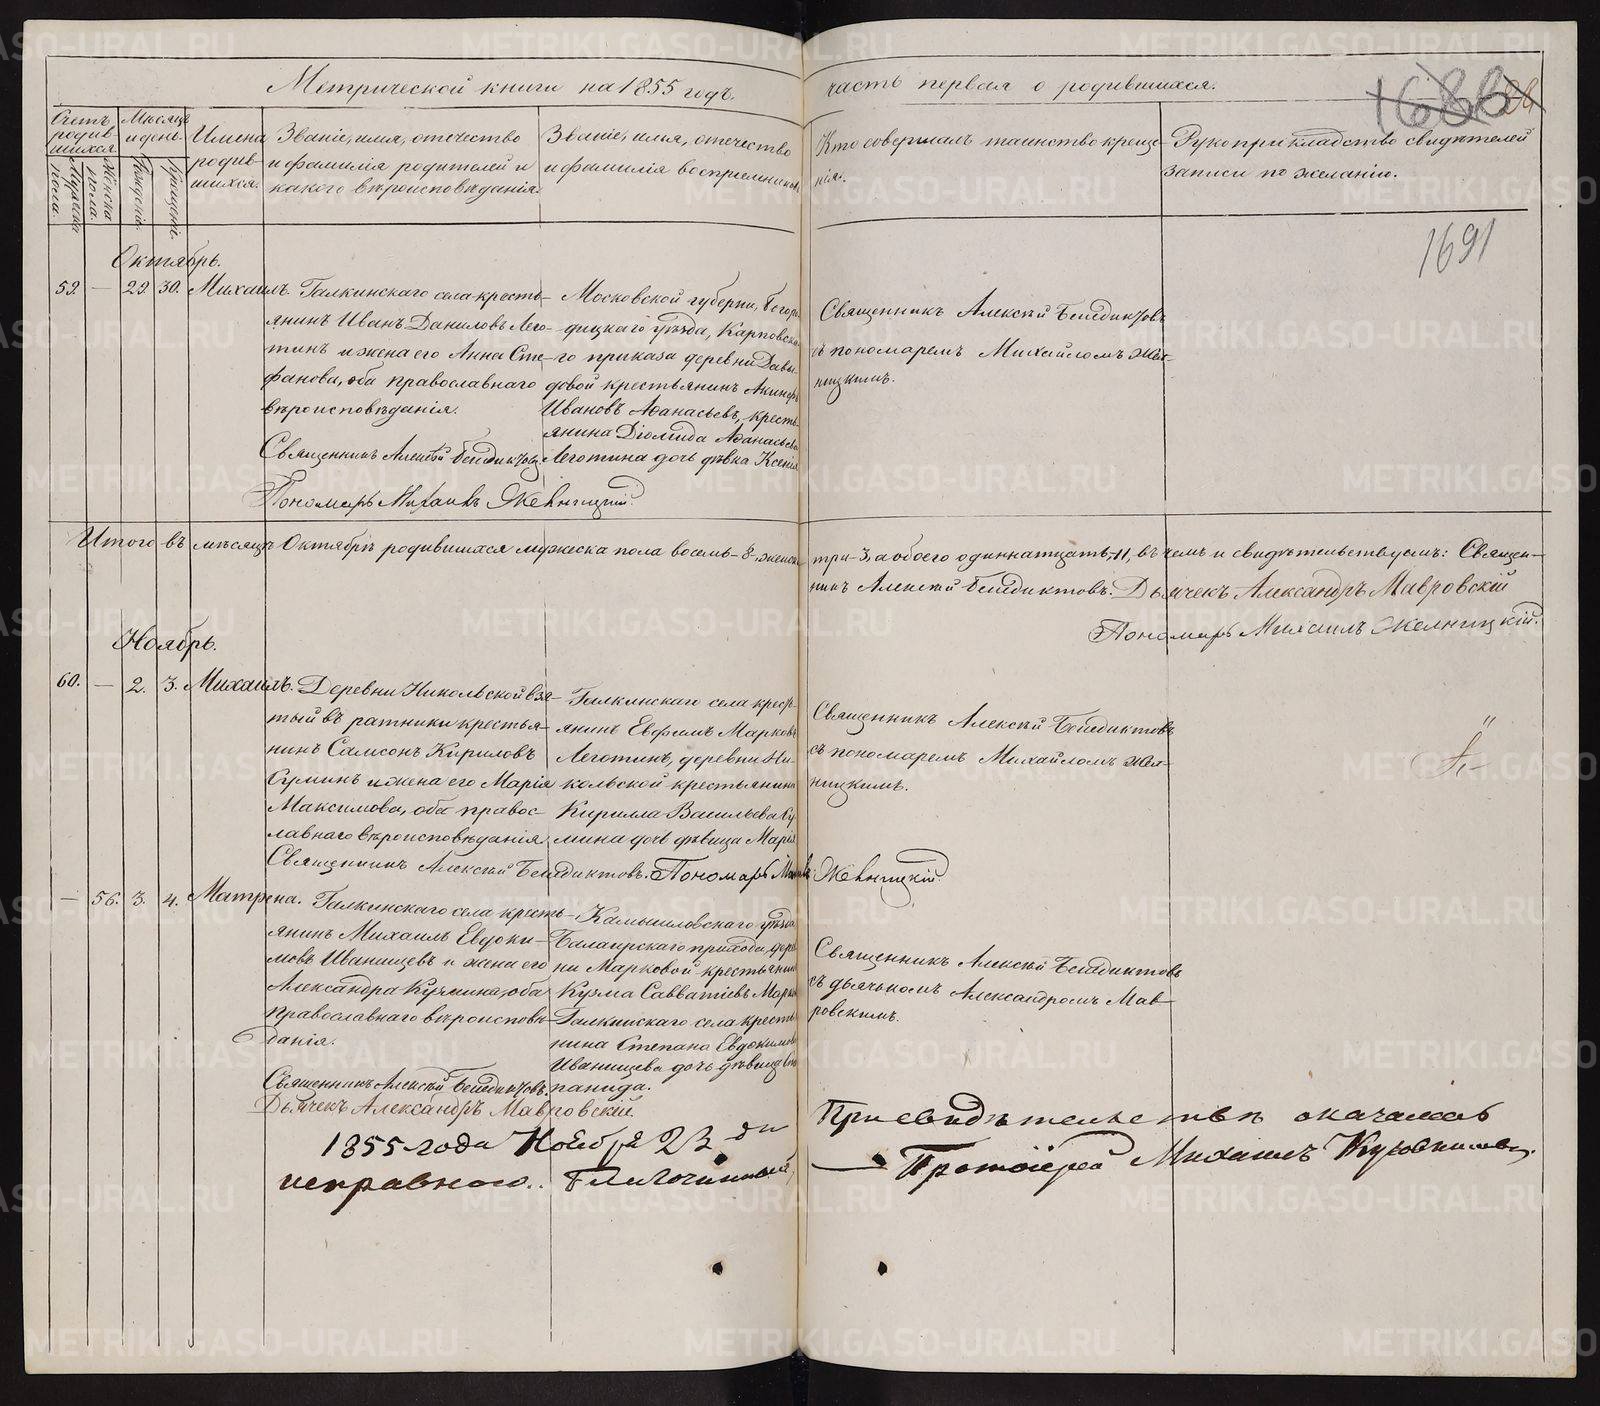 Метрической книги на 1855 годъ.
часть первая о родившихся.
Счетъ родив-шихся.
Мужеска пола.
Женска пола.
Мѣсяцъ и день.
Рожденія.
Крещенія.
Имена родив-шихся.
Званіе, имя, отечество
и фамилія родителей и
какого вѣроисповѣданія.
Званіе, имя, отечество
и фамилія воспріемниковъ
Кто совершалъ таинство креще-
нія.
Рукоприкладство свидѣтелей
записи по желанію.
1691
Октябрь.
59. — 29. 30. Михаилъ.
Галкинскаго села кресть-
янинъ Иванъ Даниловъ Лего-
тинъ и жена его Анна Сте-
фанова, оба православнаго
вѣроисповѣданія.
Священникъ Алексѣй Бенедиктовъ.
Пономарь Михаилъ
Московской губерни, Богоро-
дицкаго уѣзда, Карповска-
го приказа деревни Давы-
довой крестьянинъ Акинфъ
Ивановъ Аѳанасьевъ, кресть-
янина Діомида Аѳанасьева
Леготина дочь дѣвка Ксенія
Священникъ Алексѣй Бенедиктовъ
съ пономаремъ Михайломъ Жел-
ницкимъ.
Итого въ мѣсяцѣ Октябрѣ родившихся мужеска пола восемь - 8, женска
три - 3, а обоего одиннатцать, 11, въ чемъ и свидѣтельствуемъ: Священ-
никъ Алексѣй Бенедиктовъ. Дьячекъ Александръ Мавровскій
Пономарь Михаилъ Желницкій.
Ноябрь.
60. — 2. 3. Михаилъ.
Деревни Никольской взя-
тый въ ратники крестья-
нинъ Самсонъ Кириловъ
Суминъ и жена его Марія
Максимова, оба правос-
лавнаго вѣроисповѣданія.
Галкинскаго села кресть-
янинъ Евфимъ Марковъ
Леготинъ, деревни Ни-
кольской крестьянина
Кирилла Васильева Су-
мина дочь дѣвица Марія
Священникъ Алексѣй Бенедиктовъ
съ пономаремъ Михайломъ Жел-
ницкимъ.
Священникъ Алексѣй Бенедиктовъ. Пономарь
— 56. 3. 4. Матрена.
Галкинскаго села кресть-
янинъ Михаилъ Евдоки-
мовъ Иванищевъ и жена его
Александра Кузмина, оба
православнаго вѣроисповѣ-
данія.
Священникъ Алексѣй Бенедиктовъ.
Дьячекъ Александръ Мавровскій.
Камышловскаго уѣзда
Балаирскаго прихода, дерев-
ни Марковой крестьянинъ
Кузма Савватіевъ
Галкинскаго села кресть-
нина Степана Евдокимова
Иванищева дочь дѣвица Сте-
панида.
Священникъ Алексѣй Бенедиктовъ
съ дьячькомъ Александромъ Мав-
ровскимъ.
1855 года Ноября 23 дн
При свидѣтельствѣ оказалась
исправною. Благочинный,
Протоіерей Михаилъ